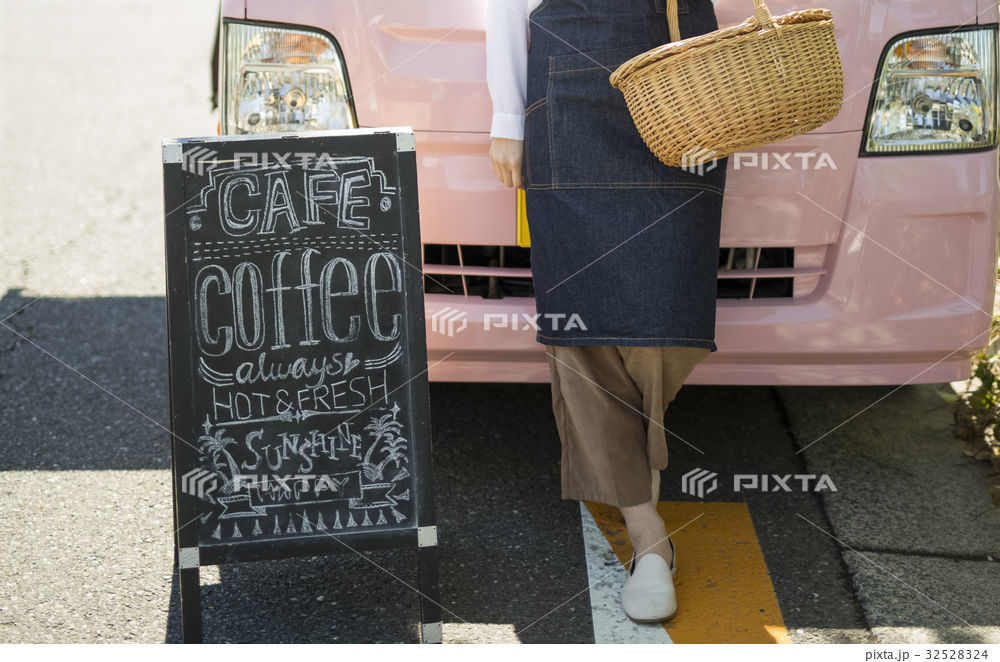 CAFE
coffee
always
HOT & FRESH
SUNSHINE
PIXTA
PIXTA
PIXTA
PIXTA
PIXTA
pixta.jp - 32528324